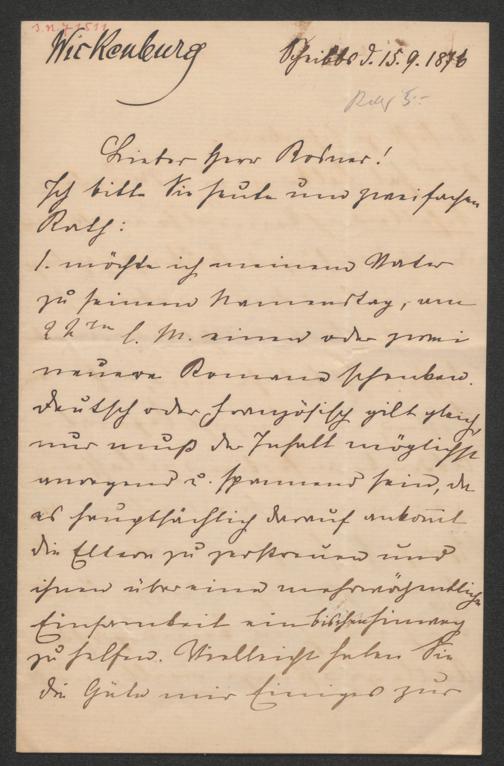 Wickenburg
Scheibbs d. 15.9.1876
Lieber Herr Rosner!
Ich bitte Sie heute um zweifachen
Rath:
1. möchte ich meinem Vater
zu seinem Namenstag, am
l. M. einen oder zwei
neuere Romane schenken.
Deutsch oder französisch gilt gleich,
nur muß der Inhalt möglichst
anregend u. spannend sein, da
es hauptsächlich darauf ankom̅t
die Eltern zu zerstreuen und
ihnen über eine mehrwöchentliche
Einsamkeit ein bischen hinweg
zu helfen. Vielleicht haben Sie
die Güte mir Einiges zur